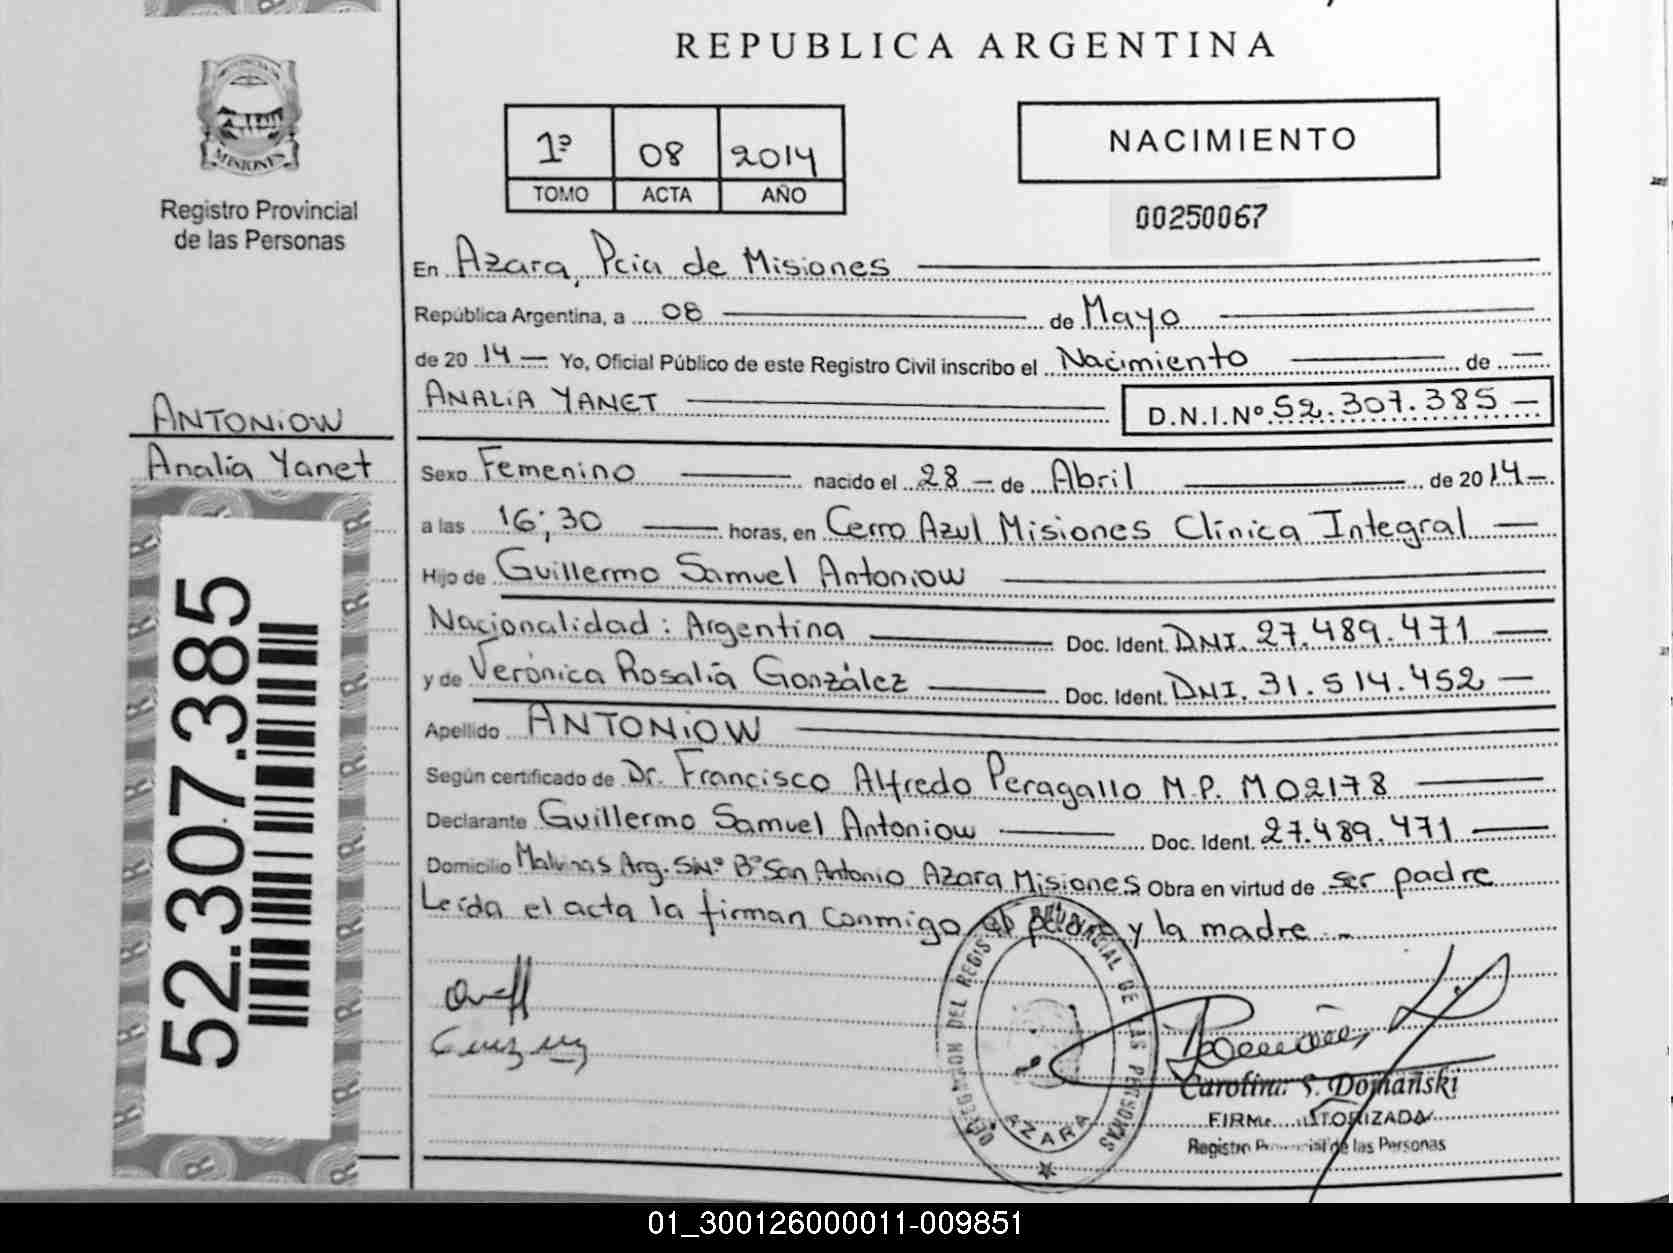 REPUBLICA ARGENTINA
MISIONES
Registro Provincial
de las Personas
1º 08 2014
TOMO ACTA AÑO
NACIMIENTO
00250067
En Azara, Pcia de Misiones
República Argentina, a 08 de Mayo
de 2014 Yo, Oficial Público de este Registro Civil inscribo el Nacimiento de
ANALIA YANET D.N.I.Nº 52.307.385
ANTONIOW
Analía Yanet
Sexo Femenino nacido el 28 de Abril de 2014
a las 16:30 horas, en Cerro Azul Misiones Clínica Integral
Hijo de Guillermo Samuel Antoniow
Nacionalidad: Argentina Doc. Ident. DNI. 27.489.471
y de Verónica Rosalía González Doc. Ident. DNI. 31.514.452
Apellido ANTONIOW
Según certificado de Dr. Francisco Alfredo Peragallo M.P. M02178
Declarante Guillermo Samuel Antoniow Doc. Ident. 27.489.471
Domicilio Malvinas Arg. S/Nº Bº San Antonio Azara Misiones Obra en virtud de ser padre
Leída el acta la firman conmigo el padre y la madre.-
52.307.385
DELEGACION DEL REGISTRO PROVINCIAL DE LAS PERSONAS
AZARA
Carolina S. Domañski
FIRMA AUTORIZADA
Registro Provincial de las Personas
01_300126000011-009851